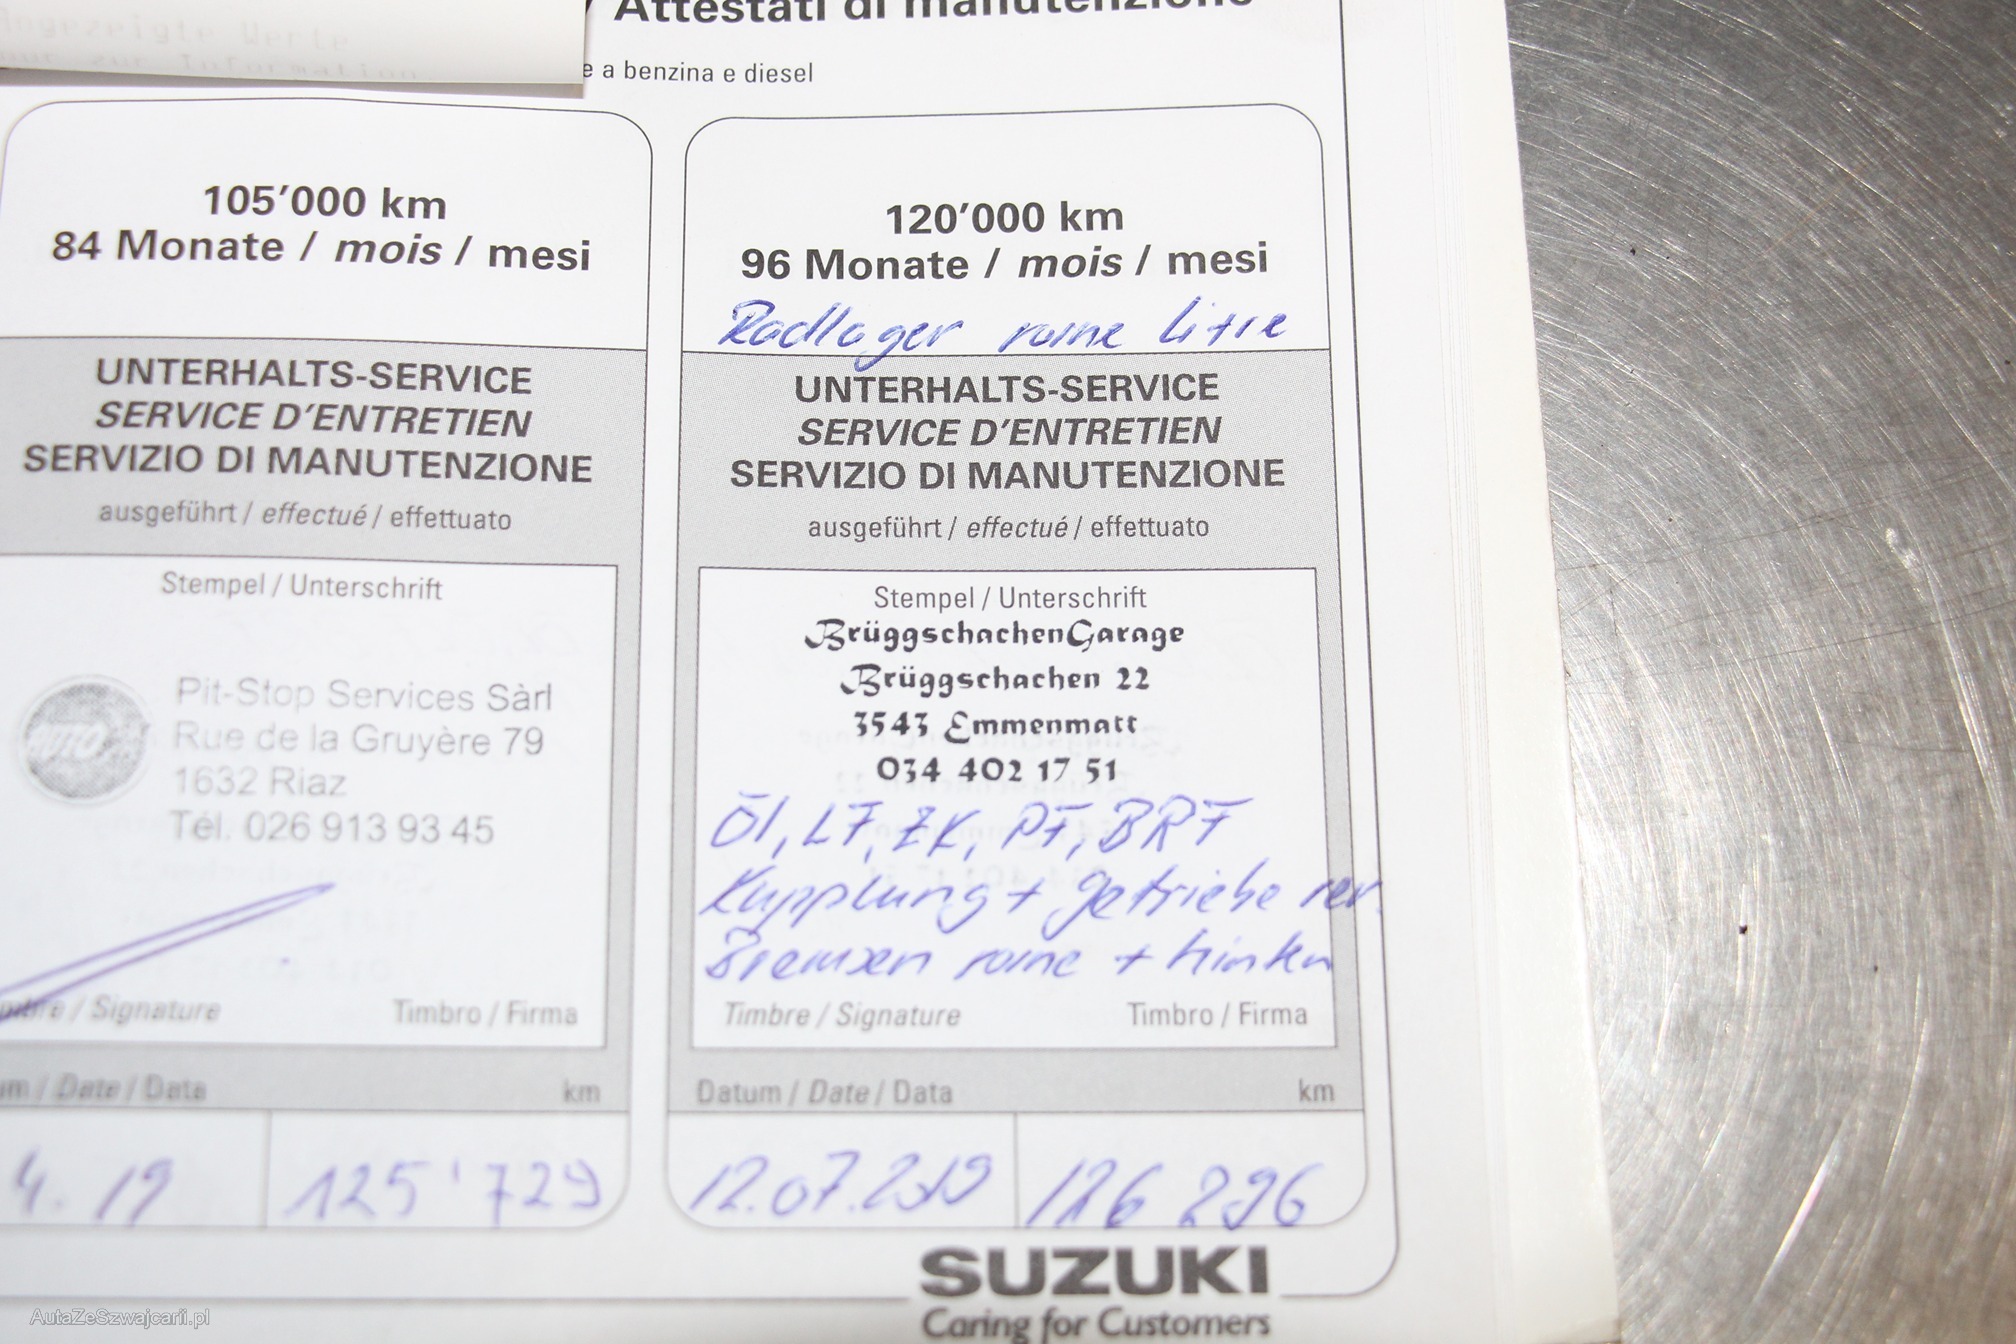 Angezeigte Werte
nur zur Information
/ Attestati di manutenzione
e a benzina e diesel
105'000 km
84 Monate / mois / mesi
UNTERHALTS-SERVICE
SERVICE D'ENTRETIEN
SERVIZIO DI MANUTENZIONE
ausgeführt / effectué / effettuato
Stempel / Unterschrift
AUTO
Pit-Stop Services Sàrl
Rue de la Gruyère 79
1632 Riaz
Tél. 026 913 93 45
mbre / Signature Timbro / Firma
um / Date / Data km
4. 19 125'729
120'000 km
96 Monate / mois / mesi
Radlager
UNTERHALTS-SERVICE
SERVICE D'ENTRETIEN
SERVIZIO DI MANUTENZIONE
ausgeführt / effectué / effettuato
Stempel / Unterschrift
BrüggschachenGarage
Brüggschachen 22
3543 Emmenmatt
034 402 17 51
Öl, LF, ZK, PF, BRF
Kupplung + Getriebe rev.
Bremsen vorne + hinten
Timbre / Signature Timbro / Firma
Datum / Date / Data km
12.07.2019 126 296
SUZUKI
Caring for Customers
AutaZeSzwajcarii.pl